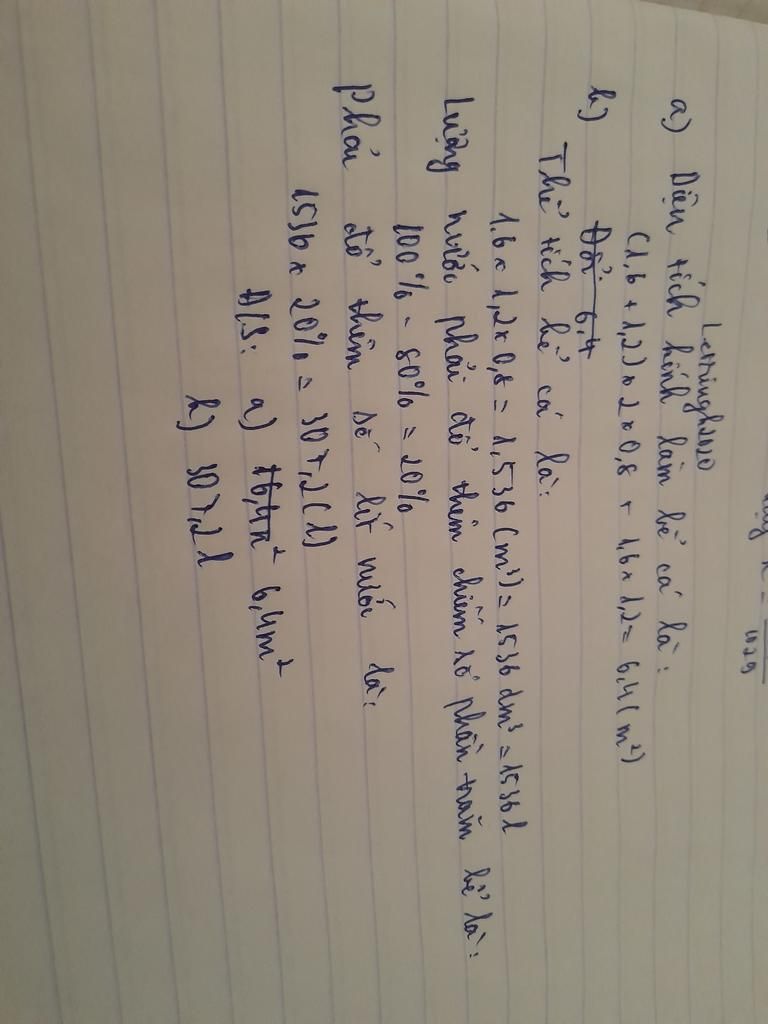 Lettringh2020
a) Diện tích kính làm bể cá là:
(1,6 + 1,2) x 2 x 0,8 + 1,6 x 1,2 = 6,4 (m²)
b) Đổi 6,4
Thể tích bể cá là:
1,6 x 1,2 x 0,8 = 1,536 (m³) = 1536 dm³ = 1536 l
Lượng nước phải đổ thêm chiếm số phần trăm bể là:
100% - 80% = 20%
Phải đổ thêm số lít nước là:
1536 x 20% = 307,2 (l)
Đ/S: a) 6,4m²
b) 307,2 l